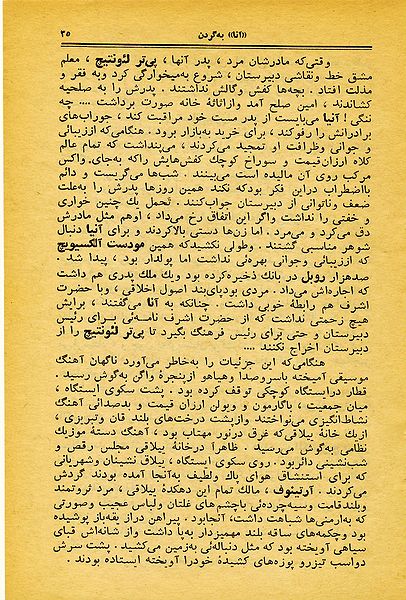 «آنا» به‌گردن ۳۵
وقتی‌که مادرشان مرد ، پدر آنها ، پی‌تر لئونتیچ ، معلم
مشق خط ونقاشی دبیرستان ، شروع به‌میخوارگی کرد وبه فقر و
مذلت افتاد . بچه‌ها کفش وگالش نداشتند . پدرش را به صلحیه
کشاندند ، امین صلح آمد وازاثاثهٔ خانه صورت برداشت .... چه
ننگی ! آنیا می‌بایست از پدر مست خود مراقبت کند ، جوراب‌های
برادرانش را رفوکند ، برای خرید به‌بازار برود . هنگامی‌که اززیبائی
و جوانی وظرافت او تمجید می‌کردند ، می‌پنداشت که تمام عالم
کلاه ارزان‌قیمت و سوراخ کوچك کفش‌هایش راکه به‌جای واکس
مرکب روی آن مالیده است می‌بینند . شب‌ها می‌گریست و دائم
بااضطراب دراین فکر بودکه نکند همین روزها پدرش را به‌علت
ضعف وناتوانی از دبیرستان جواب‌کنند . تحمل یك چنین خواری
و خفتی را نداشت واگر این اتفاق رخ می‌داد ، اوهم مثل مادرش
دق می‌کرد و می‌مرد . اما زن‌ها دستی بالاکردند و برای آنیا دنبال
شوهر مناسبی گشتند . وطولی نکشیدکه همین مودست آلکسیویچ
که اززیبائی وجوانی بهره‌ئی نداشت اما پولدار بود ، پیدا شد .
صدهزار روبل در بانك ذخیره‌کرده بود ویك ملك پدری هم داشت
که اجاره‌اش می‌داد . مردی بودپای‌بند اصول اخلاقی ، وبا حضرت
اشرف هم رابطهٔ خوبی داشت . چنانکه به آنا می‌گفتند ، برایش
هیچ زحمتی نداشت که از حضرت اشرف نامه‌ئی برای رئیس
دبیرستان و حتی برای رئیس فرهنگ بگیرد تا پی‌تر لئونتیچ را از
دبیرستان اخراج نکنند ....
هنگامی‌که این جزئیات را به‌خاطر می‌آورد ناگهان آهنگ
موسیقی آمیخته باسروصدا وهیاهو ازپنجرهٔ واگن به‌گوش رسید .
قطار درایستگاه کوچکی توقف کرده بود . پشت سکوی ایستگاه ،
میان جمعیت ، باگارمون و ویولن ارزان قیمت و بدصدائی آهنگ
نشاط‌انگیزی می‌نواختند وازپشت درخت‌های بلند قان وتبریزی ،
ازیك خانهٔ ییلاقی‌که غرق درنور مهتاب بود ، آهنگ دستهٔ موزیك
نظامی به‌گوش می‌رسید . ظاهراً درخانهٔ ییلاقی مجلس رقص و
شب‌نشینی دائربود . روی سکوی ایستگاه ، ییلاق نشینان وشهریانی
که برای استنشاق هوای پاك ولطیف به‌آنجا آمده بودند گردش
می‌کردند . آرتینوف ، مالك تمام این دهکدهٔ ییلاقی ، مرد ثروتمند
وبلندقامت وسیه‌چرده‌ئی باچشم‌های غلتان ولباس عجیب وصورتی
که به‌ارمنی‌ها شباهت داشت، آنجابود . پیراهن دراز یقه‌باز پوشیده
بود وچکمه‌های ساقه بلند مهمیزدار به‌پا داشت واز شانه‌اش قبای
سیاهی آویخته بود که مثل دنباله‌ئی به‌زمین می‌کشید . پشت سرش
دواسب تیزرو پوزه‌های کشیدهٔ خودرا آویخته ایستاده بودند .